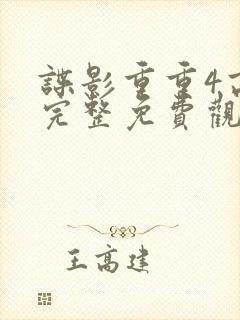 諜影重重4高
完整免費觀
王高建